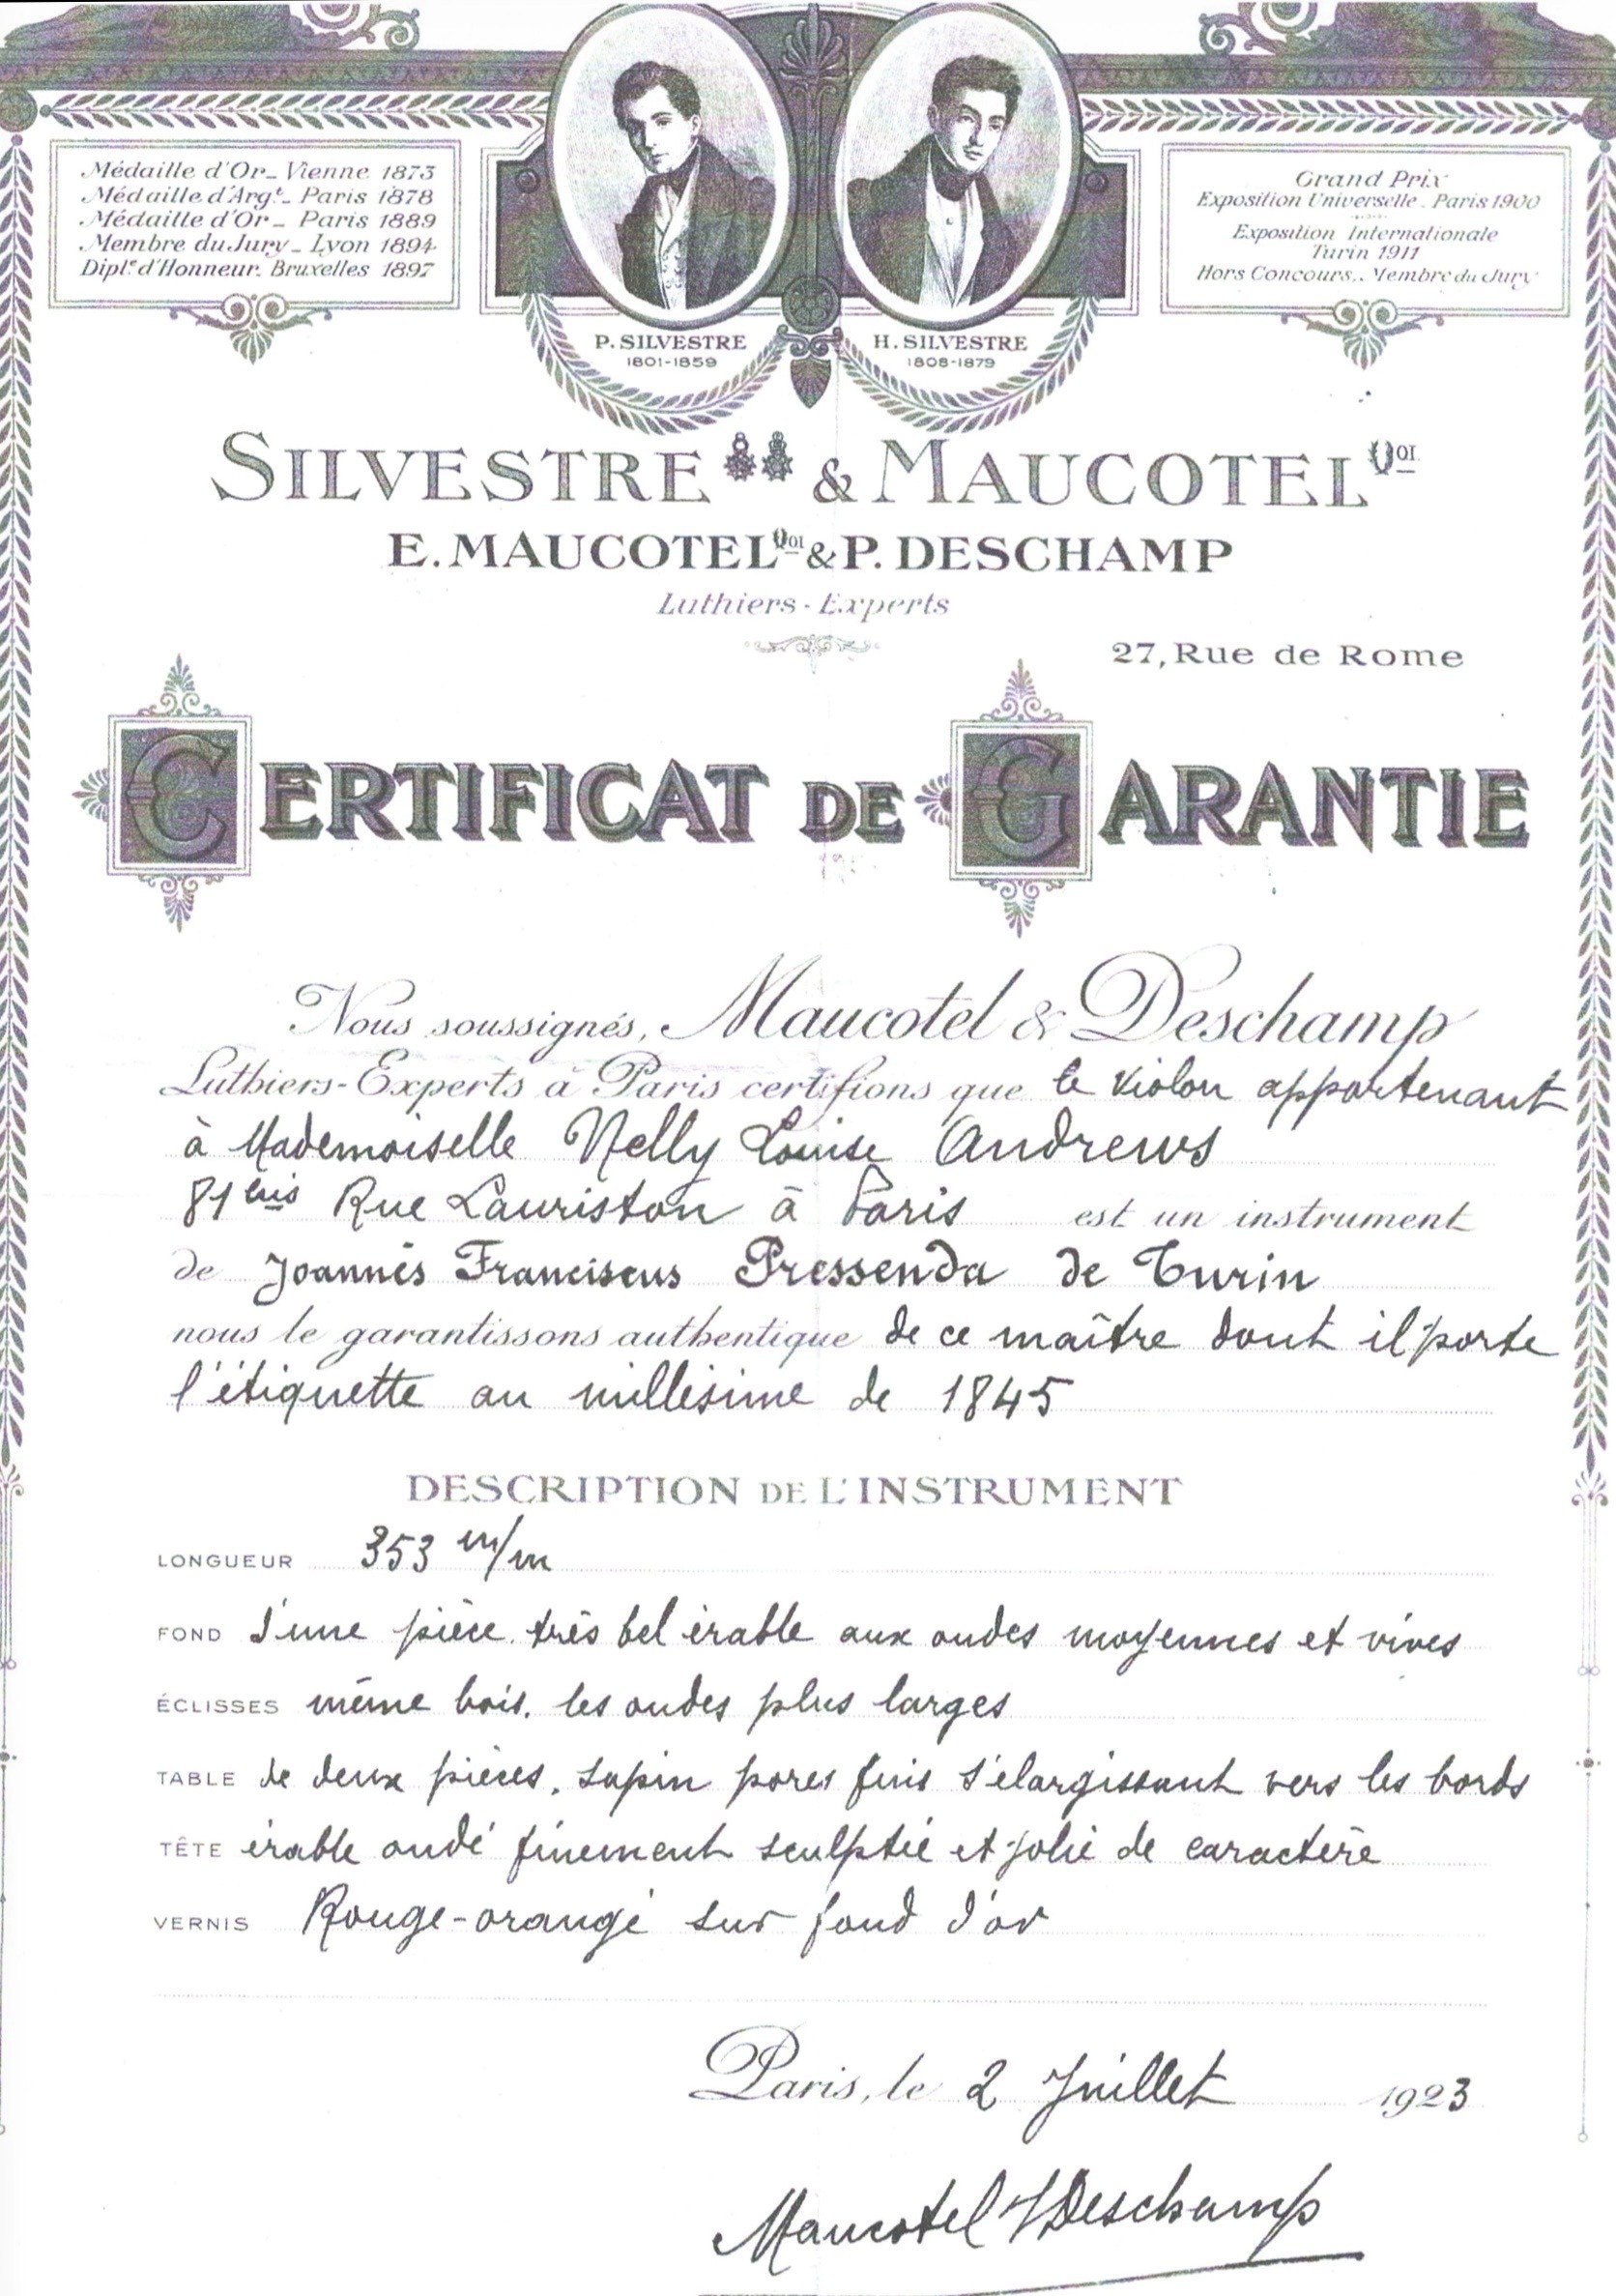 Médaille d'Or_ Vienne 1873
Médaille d'Argt_ Paris 1878
Médaille d'Or_ Paris 1889
Membre du Jury_ Lyon 1894
Diplé d'Honneur. Bruxelles 1897
Grand Prix
Exposition Universelle. Paris 1900
Exposition Internationale
Turin 1911
Hors Concours.. Membre du Jury
P. SILVESTRE
1801-1859
H. SILVESTRE
1808-1879
SILVESTRE & MAUCOTEL
E. MAUCOTEL & P. DESCHAMP
Luthiers-Experts
27, Rue de Rome
CERTIFICAT DE GARANTIE
Nous soussignés, Maucotel & Deschamp
Luthiers-Experts à Paris certifions que le violon appartenant
à Mademoiselle Nelly Louise Andrews
81 bis Rue Lauriston à Paris est un instrument
de Joannès Franciscus Pressenda de Turin
nous le garantissons authentique de ce maître dont il porte
l'étiquette au millésime de 1845
DESCRIPTION DE L'INSTRUMENT
LONGUEUR 353 m/m
FOND d'une pièce. très bel érable aux ondes moyennes et vives
ÉCLISSES même bois. les ondes plus larges
TABLE de deux pièces. sapin pores fins s'élargissant vers les bords
TÊTE érable ondé finement sculptée et jolie de caractère
VERNIS Rouge-orangé sur fond d'or
Paris, le 2 Juillet 1923
Maucotel & Deschamp